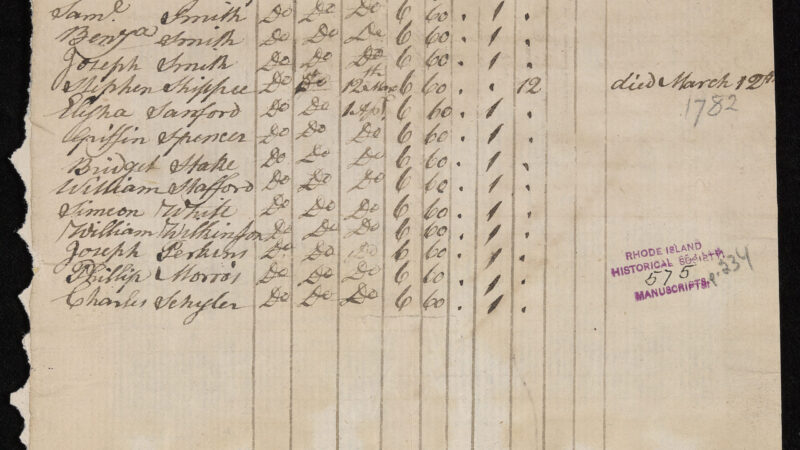 Saml Smith Do Do Do 6 60 . 1 .
Benja Smith Do Do Do 6 60 . 1 .
Joseph Smith Do Do Do 6 60 . 1 .
Stephen Shippee Do Do 12th March 6 60 . . 12 died March 12th
1782
Elisha Sanford Do Do 1 Apl 6 60 . 1 .
Griffin Spencer Do Do Do 6 60 . 1 .
Bridget Stake Do Do Do 6 60 . 1 .
William Stafford Do Do Do 6 60 . 1 .
Simeon White Do Do Do 6 60 . 1 .
William Wilkinson Do Do Do 6 60 . 1 .
Joseph Perkins Do Do Do 6 60 . 1 .
Phillip Morris Do Do Do 6 60 . 1 .
Charles Do Do Do 6 60 . 1 .
RHODE ISLAND
HISTORICAL SOCIETY
575 p. 234
MANUSCRIPTS